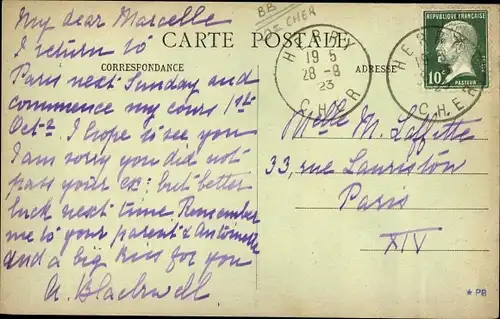 BB
DE CHER
CARTE POSTALE
CORRESPONDANCE
ADRESSE
RÉPUBLIQUE FRANÇAISE
10c
PASTEUR
HERRY
19 5
28-9
23
CHER
HERRY
CHER
My dear Marcelle
I return to
Paris next Sunday and
commence my cours 1st
Oct. I hope to see you
I am sorry you did not
pass your ex: but better
luck next time Remember
me to your parent & Antoinette
and a big kiss for you
A. Blackwell
Melle M. Laffitte
33, rue Lauriston
Paris
XIV
* PB